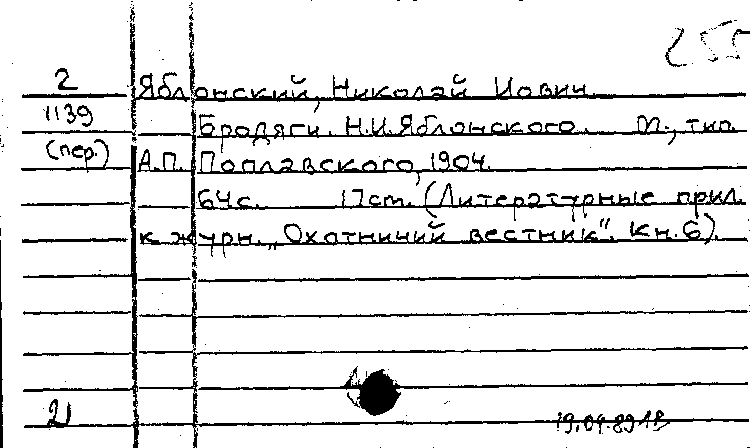 255
2 Яблонский, Николай Иович.
1139 Бродяги. Н.И.Яблонского. М., тип.
(пер.) А.П. Поплавского, 1904.
64с. 17см. (Литературные прил.
к журн. „Охотничий вестник". Кн.6).
21
19.04.89